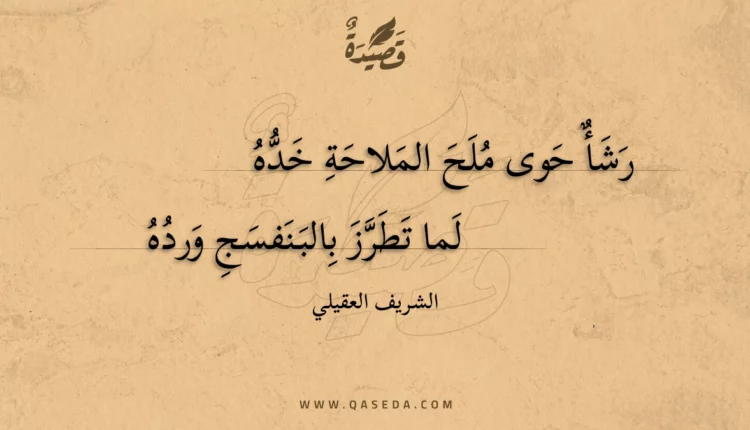 قَصِيدَةٌ
رَشَأٌ حَوى مُلَحَ المَلاحَةِ خَدُّهُ
لَما تَطَرَّزَ بِالبَنَفسَجِ وَردُهُ
الشريف العقيلي
WWW.QASEDA.COM